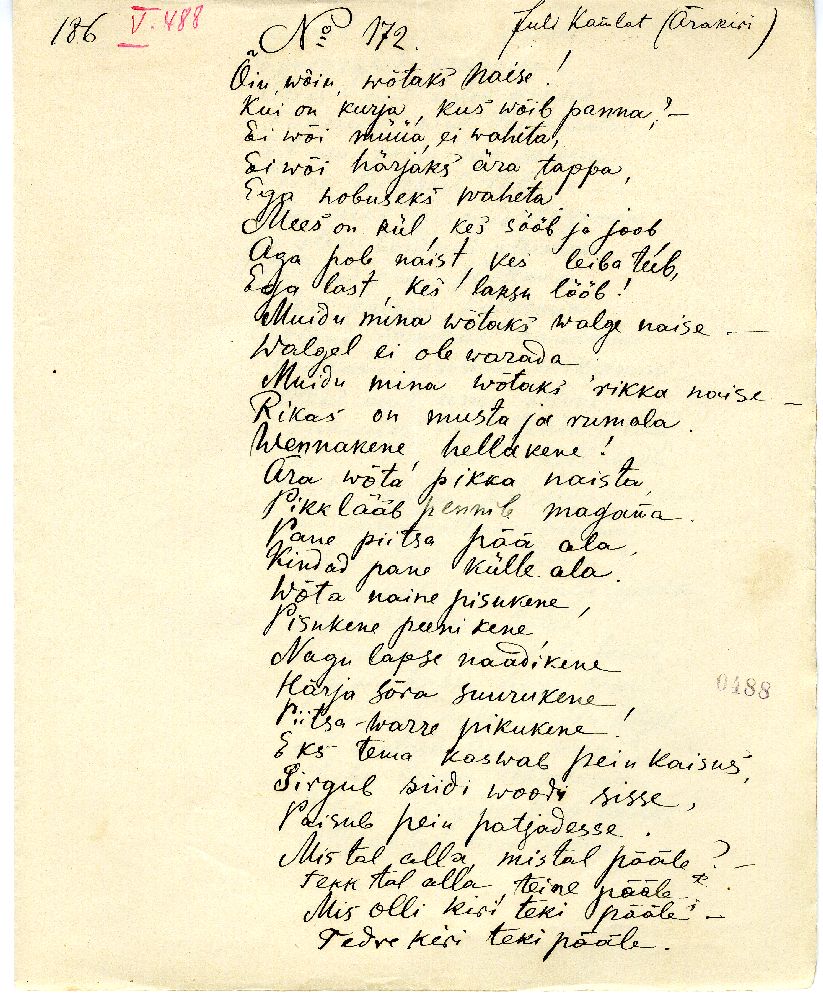 186 V. 488
No 172.
Juli Kaulat (Ärakiri)
Õin, wõin, wõtaks naise!
Kui on kurja, kus wõib panna? –
Ei wõi müüa, ei waheta,
Ei wõi härjaks ära tappa,
Ega hobuseks waheta.
Mees on küll, kes sööb ja joob,
Aga pole naist, kes leiba teeb,
Ega last, kes lapsu lööb!
Muidu mina wõtaks walge naise. –
Walgel ei ole warada.
Muidu mina wõtaks rikka naise –
Rikas on musta ja rumala.
Wennakene, hellakene!
Ära wõta pikka naista,
Pikk lääb pennile magama.
Pane piitsa pää ala,
Kindad pane külle ala.
Wõta naine pisukene,
Pisukene peenikene,
Nagu lapse naadikene
Härja sõra suurukene,
Piitsa-warre pikukene!
Eks tema kaswab pein kaisus,
Sirgub siidi woodi sisse,
Paisub pein patjadesse.
Mis tal alla, mis tal pääle? –
Tekk tal alla, teine pääle.
Mis olli kiri teki pääle? –
Tedre kiri teki pääle.
0488